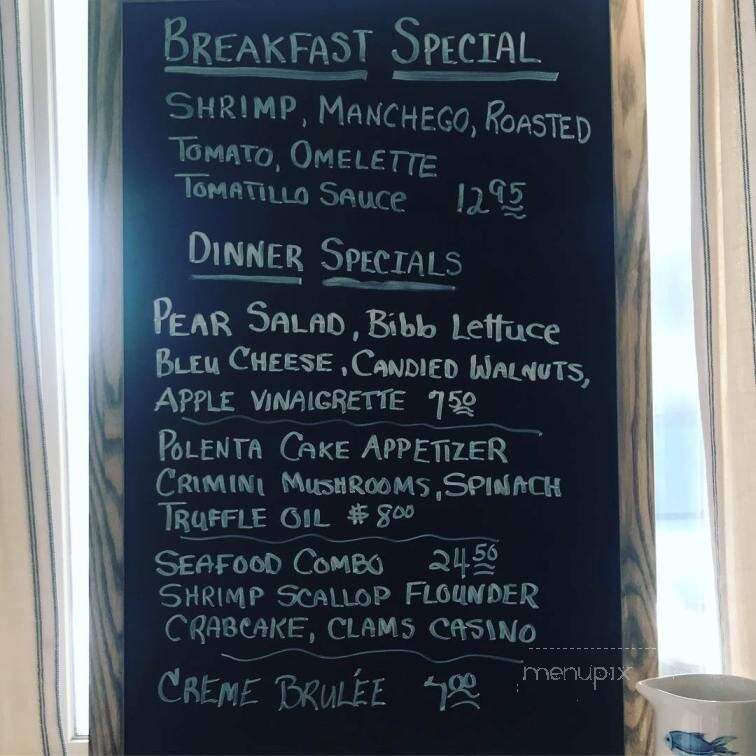 BREAKFAST SPECIAL
SHRIMP, MANCHEGO, ROASTED
TOMATO, OMELETTE
TOMATILLO SAUCE 12 95
DINNER SPECIALS
PEAR SALAD, Bibb Lettuce
BLEU CHEESE, CANDIED WALNUTS,
APPLE VINAIGRETTE 7 50
POLENTA CAKE APPETIZER
CRIMINI MUSHROOMS, SPINACH
TRUFFLE OIL $ 8 00
SEAFOOD COMBO 24 50
SHRIMP SCALLOP FLOUNDER
CRABCAKE, CLAMS CASINO
menupix
CREME BRULÉE 7 00